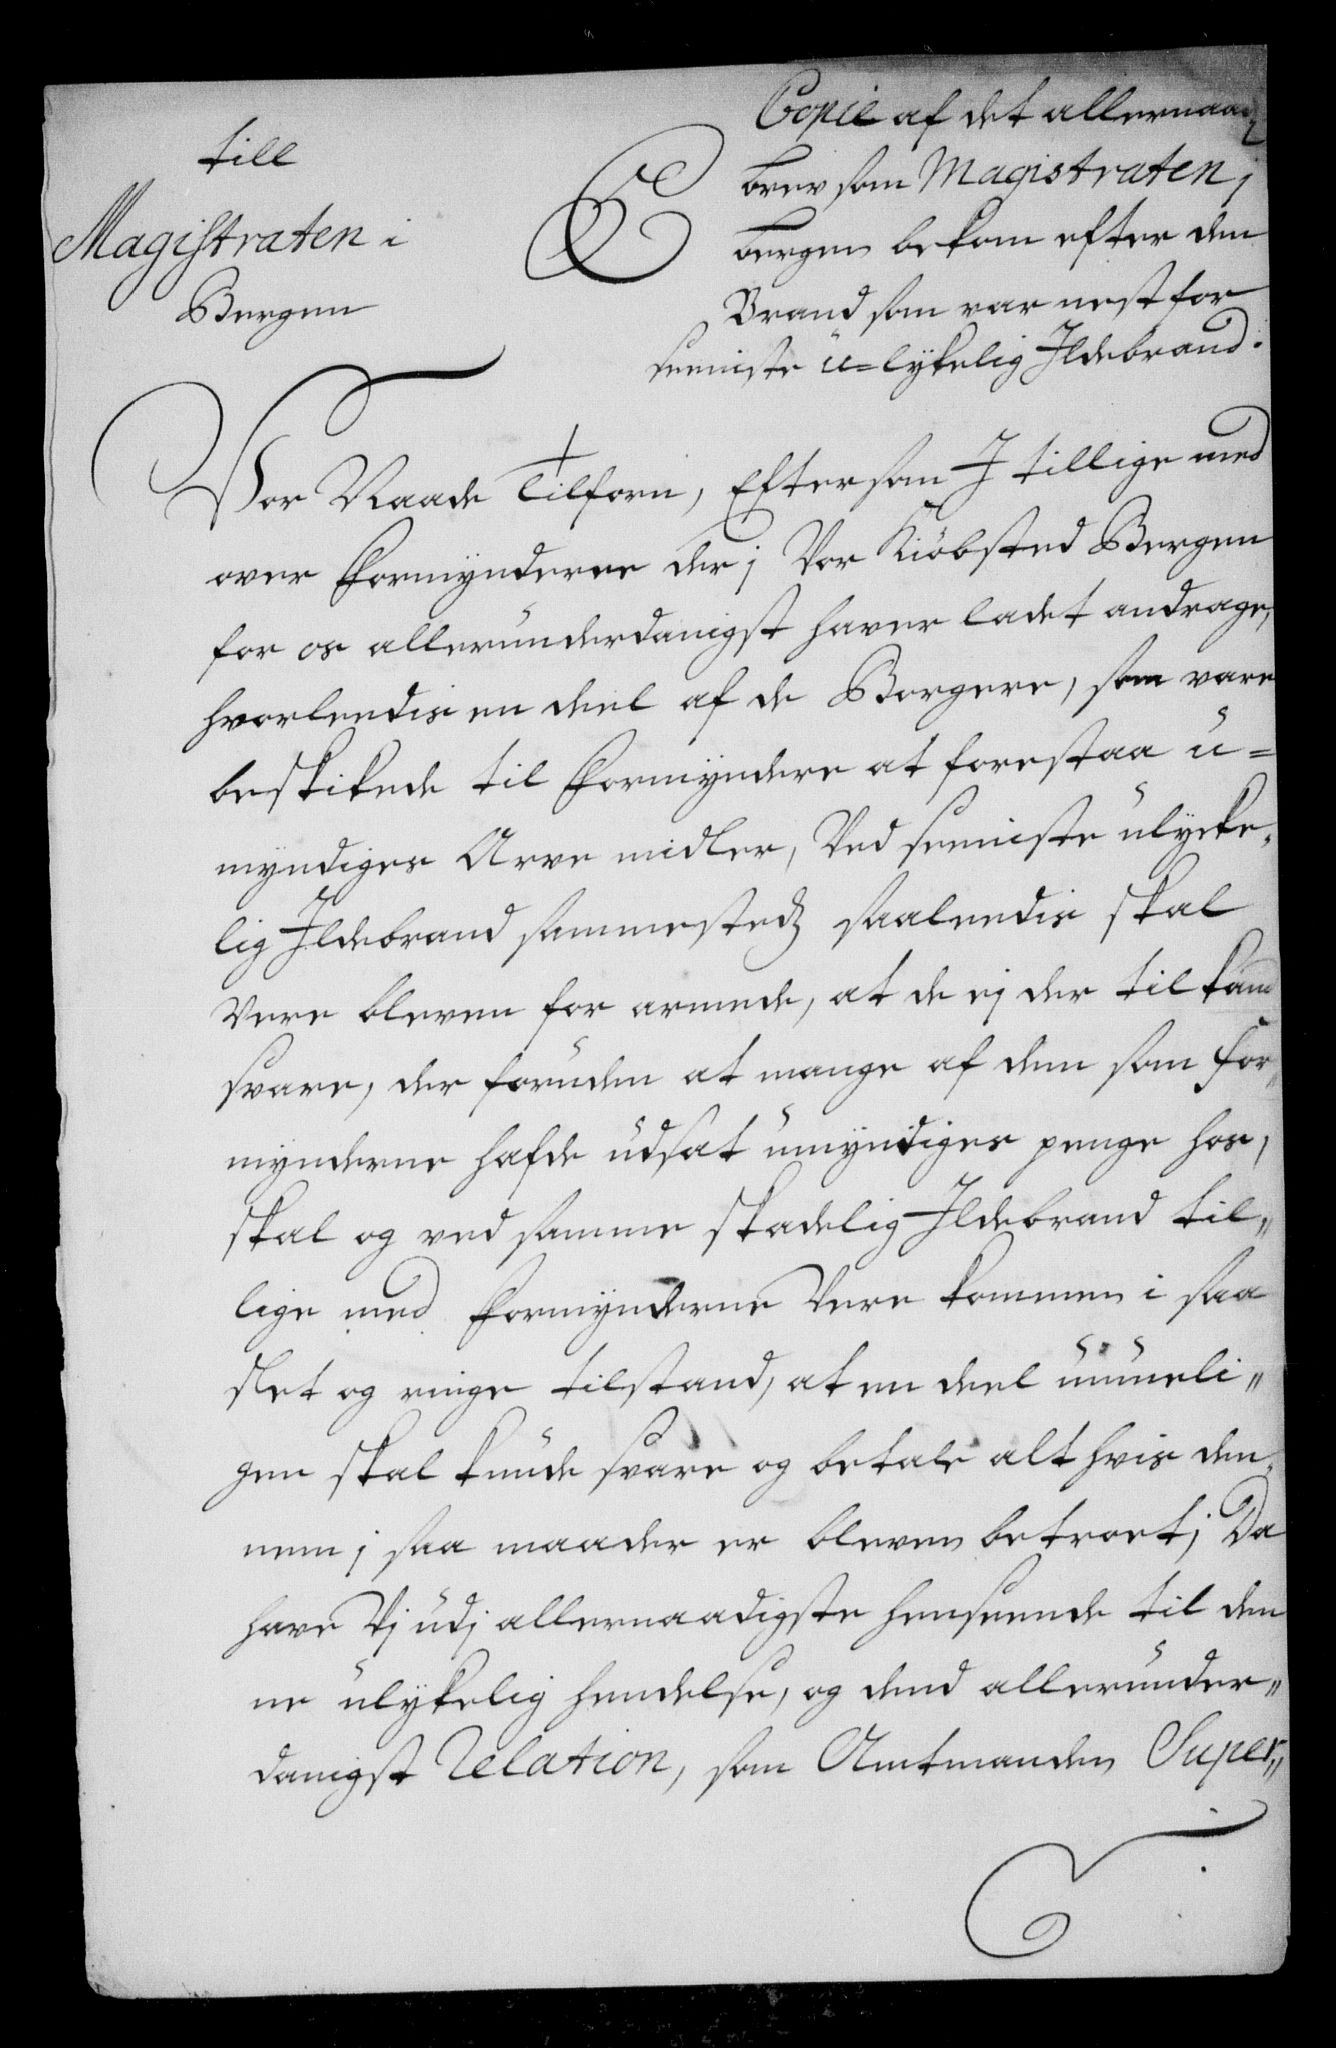 till
Magistraten i
Bergen
Copie af det allernaad
brev som Magistraten j
bergen bekom efter den
Brand som var nest for
seeniste u=lykelig Ildebrand.
Vor Naade Tilforn, Eftersom J tillige med
over formynderne der j Vor Kiöbsted Bergen
for os allerunderdanigst haver ladet andrage,
hvorleedis en deel af de Borgere, som vare
beskikede til formyndere at forestaa u=
myndiges Arve midler, Ved seeniste ulycke,
lig Ildebrand sammestedz saaleedis skal
Vere bleven for armede, at de ej der til kand
svare, der foruden at mange af dem som for„
mynderne hafde udsat umyndiges penge hos,
skal og ved samme skadelig Ildebrand til„
lige med formynderne Vere kommen i saa
slet og ringe tilstand, at en deel umueli„
gen skal kunde svare og betale alt hvis den„
nem j saa maader er bleven betroet; Da
have Vj udj allernaadigste henseende til den
ne ulykelig hendelse, og dend allerunder„
danigst Relation, som Amtmanden Super„